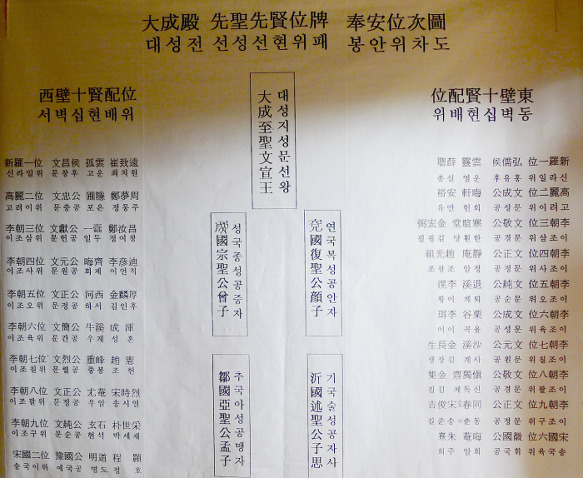 大成殿 先聖先賢位牌 奉安位次圖
대성전 선성선현위패 봉안위차도
東壁十賢配位
동벽십현배위
新羅一位 弘儒侯 薛聰
신라일위 홍유후 설총
高麗二位 文成公 晦軒 安裕
고려이위 문성공 회헌 안유
李朝三位 文敬公 寒暄堂 金宏弼
이조삼위 문경공 한훤당 김굉필
李朝四位 文正公 靜庵 趙光祖
이조사위 문정공 정암 조광조
李朝五位 文純公 退溪 李滉
이조오위 문순공 퇴계 이황
李朝六位 文成公 栗谷 李珥
이조육위 문성공 율곡 이이
李朝七位 文元公 沙溪 金長生
이조칠위 문원공 사계 김장생
李朝八位 文敬公 愼獨齋 金集
이조팔위 문경공 신독재 김집
李朝九位 文正公 同春 宋浚吉
이조구위 문정공 동춘 송준길
宋國六位 徽國公 晦庵 朱熹
송국육위 휘국공 회암 주희
대성지성문선왕
大成至聖文宣王
연국복성공안자
兗國復聖公顔子
성국종성공증자
郕國宗聖公曾子
기국술성공자사
沂國述聖公子思
추국아성공맹자
鄒國亞聖公孟子
西壁十賢配位
서벽십현배위
新羅一位 文昌侯 孤雲 崔致遠
신라일위 문창후 고운 최치원
高麗二位 文忠公 圃隱 鄭夢周
고려이위 문충공 포은 정몽주
李朝三位 文獻公 一蠹 鄭汝昌
이조삼위 문헌공 일두 정여창
李朝四位 文元公 晦齊 李彦迪
이조사위 문원공 회제 이언적
李朝五位 文正公 河西 金麟厚
이조오위 문정공 하서 김인후
李朝六位 文簡公 牛溪 成渾
이조육위 문간공 우계 성혼
李朝七位 文烈公 重峰 趙憲
이조칠위 문렬공 중봉 조헌
李朝八位 文正公 尤庵 宋時烈
이조팔위 문정공 우암 송시열
李朝九位 文純公 玄石 朴世采
이조구위 문순공 현석 박세채
宋國二位 豫國公 明道 程顥
송국이위 예국공 명도 정호